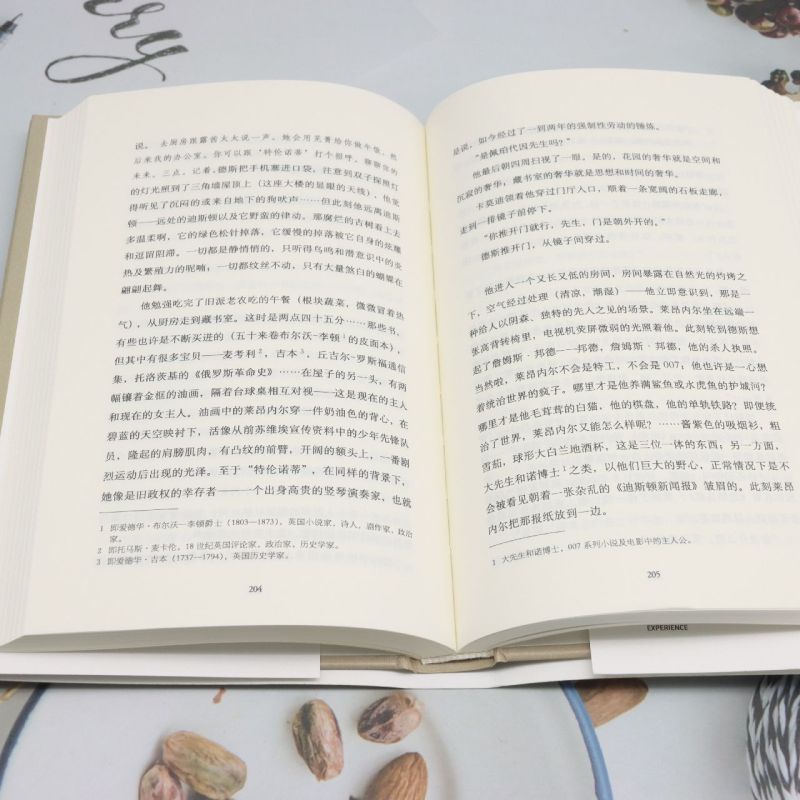 ery
说。去厨房跟露茜太太说一声。她会用芜菁给你做午饭，然
后来我的办公室。你可以跟“特伦诺蒂”打个招呼。聊聊你的
未来。三点。记着。德斯把手机塞进口袋，注意到双子探照灯
的灯光照到了三角墙屋顶上（这座大楼的显眼的天线），他觉
得听见了沉闷的或来自地下的狗吠声……但此刻他远离迪斯
顿——远处的迪斯顿以及它野蛮的律动。那腐烂的古树看上去
多温柔啊，它的绿色松针掉落，它缓慢的掉落被它自身的炫耀
和逗留阻滞。一切都是静悄悄的，只听得鸟鸣和潜意识中的炎
热及繁殖力的呢喃，一切都纹丝不动，只有大量煞白的蝴蝶在
翩翩起舞。
他勉强吃完了旧派老农吃的午餐（根块蔬菜，微微冒着热
气），从厨房走到藏书室。这时是两点四十五分……那些书，
有些也许是不断买进的（五十来卷布尔沃-李顿1的皮面本），
但其中有很多宝贝——麦考利2，吉本3，丘吉尔-罗斯福通信
集，托洛茨基的《俄罗斯革命史》……在屋子的另一头，有两
幅镶着金框的油画，隔着台球桌相互对视——这是现在的主人
和现在的女主人。油画中的莱昂内尔穿一件奶油色的背心，在
碧蓝的天空映衬下，活像从前苏维埃宣传资料中的少年先锋队
员，隆起的肩膀肌肉，有凸纹的前臂，开阔的额头上，一番剧
烈运动后出现的光泽。至于“特伦诺蒂”，在同样的背景下，
她像是旧政权的幸存者——一个出身高贵的竖琴演奏家，也就
1 即爱德华·布尔沃—李顿爵士（1803—1873），英国小说家、诗人、剧作家、政治
家。
2 即托马斯·麦卡伦，18世纪英国评论家、政治家、历史学家。
3 即爱德华·吉本（1737—1794），英国历史学家。
204
是说，如今经过了一到两年的强制性劳动的锤炼。
“是佩珀代因先生吗？”
他最后朝四周扫视了一眼。是的，花园的奢华就是空间和
沉寂的奢华，藏书室的奢华就是思想和时间的奢华。
卡莫迪领着他穿过门厅入口，顺着一条宽阔的石板走廊，
走到一排镜子前停下。
“你推开门就行，先生，门是朝外开的。”
德斯推开门，从镜子间穿过。
他进入一个又长又低的房间，房间暴露在自然光的灼烤之
下，空气经过处理（清凉，潮湿）——他立即意识到，那是一
种给人以阴森、独特的先人之见的场景。莱昂内尔坐在远端一
张高背转椅里，电视机荧屏微弱的光照着他。此刻轮到德斯想
起了詹姆斯·邦德——邦德，詹姆斯·邦德，他的杀人执照。
当然啦，莱昂内尔不会是特工，不会是007；他也许是一心想
着统治世界的疯子。哪里才是他养满鲨鱼或水虎鱼的护城河？
哪里才是他毛茸茸的白猫，他的棋盘，他的单轨铁路？即便统
治了世界，莱昂内尔又能怎么样呢？……酱紫色的吸烟衫，粗
雪茄，球形大白兰地酒杯，这是三位一体的东西；另一方面，
大先生和诺博士1之类，以他们巨大的野心，正常情况下是不
会被看见朝着一张杂乱的《迪斯顿新闻报》皱眉的。此刻莱昂
内尔把那报纸放到一边。
1 大先生和诺博士，007系列小说及电影中的主人公。
205
EXPERIENCE